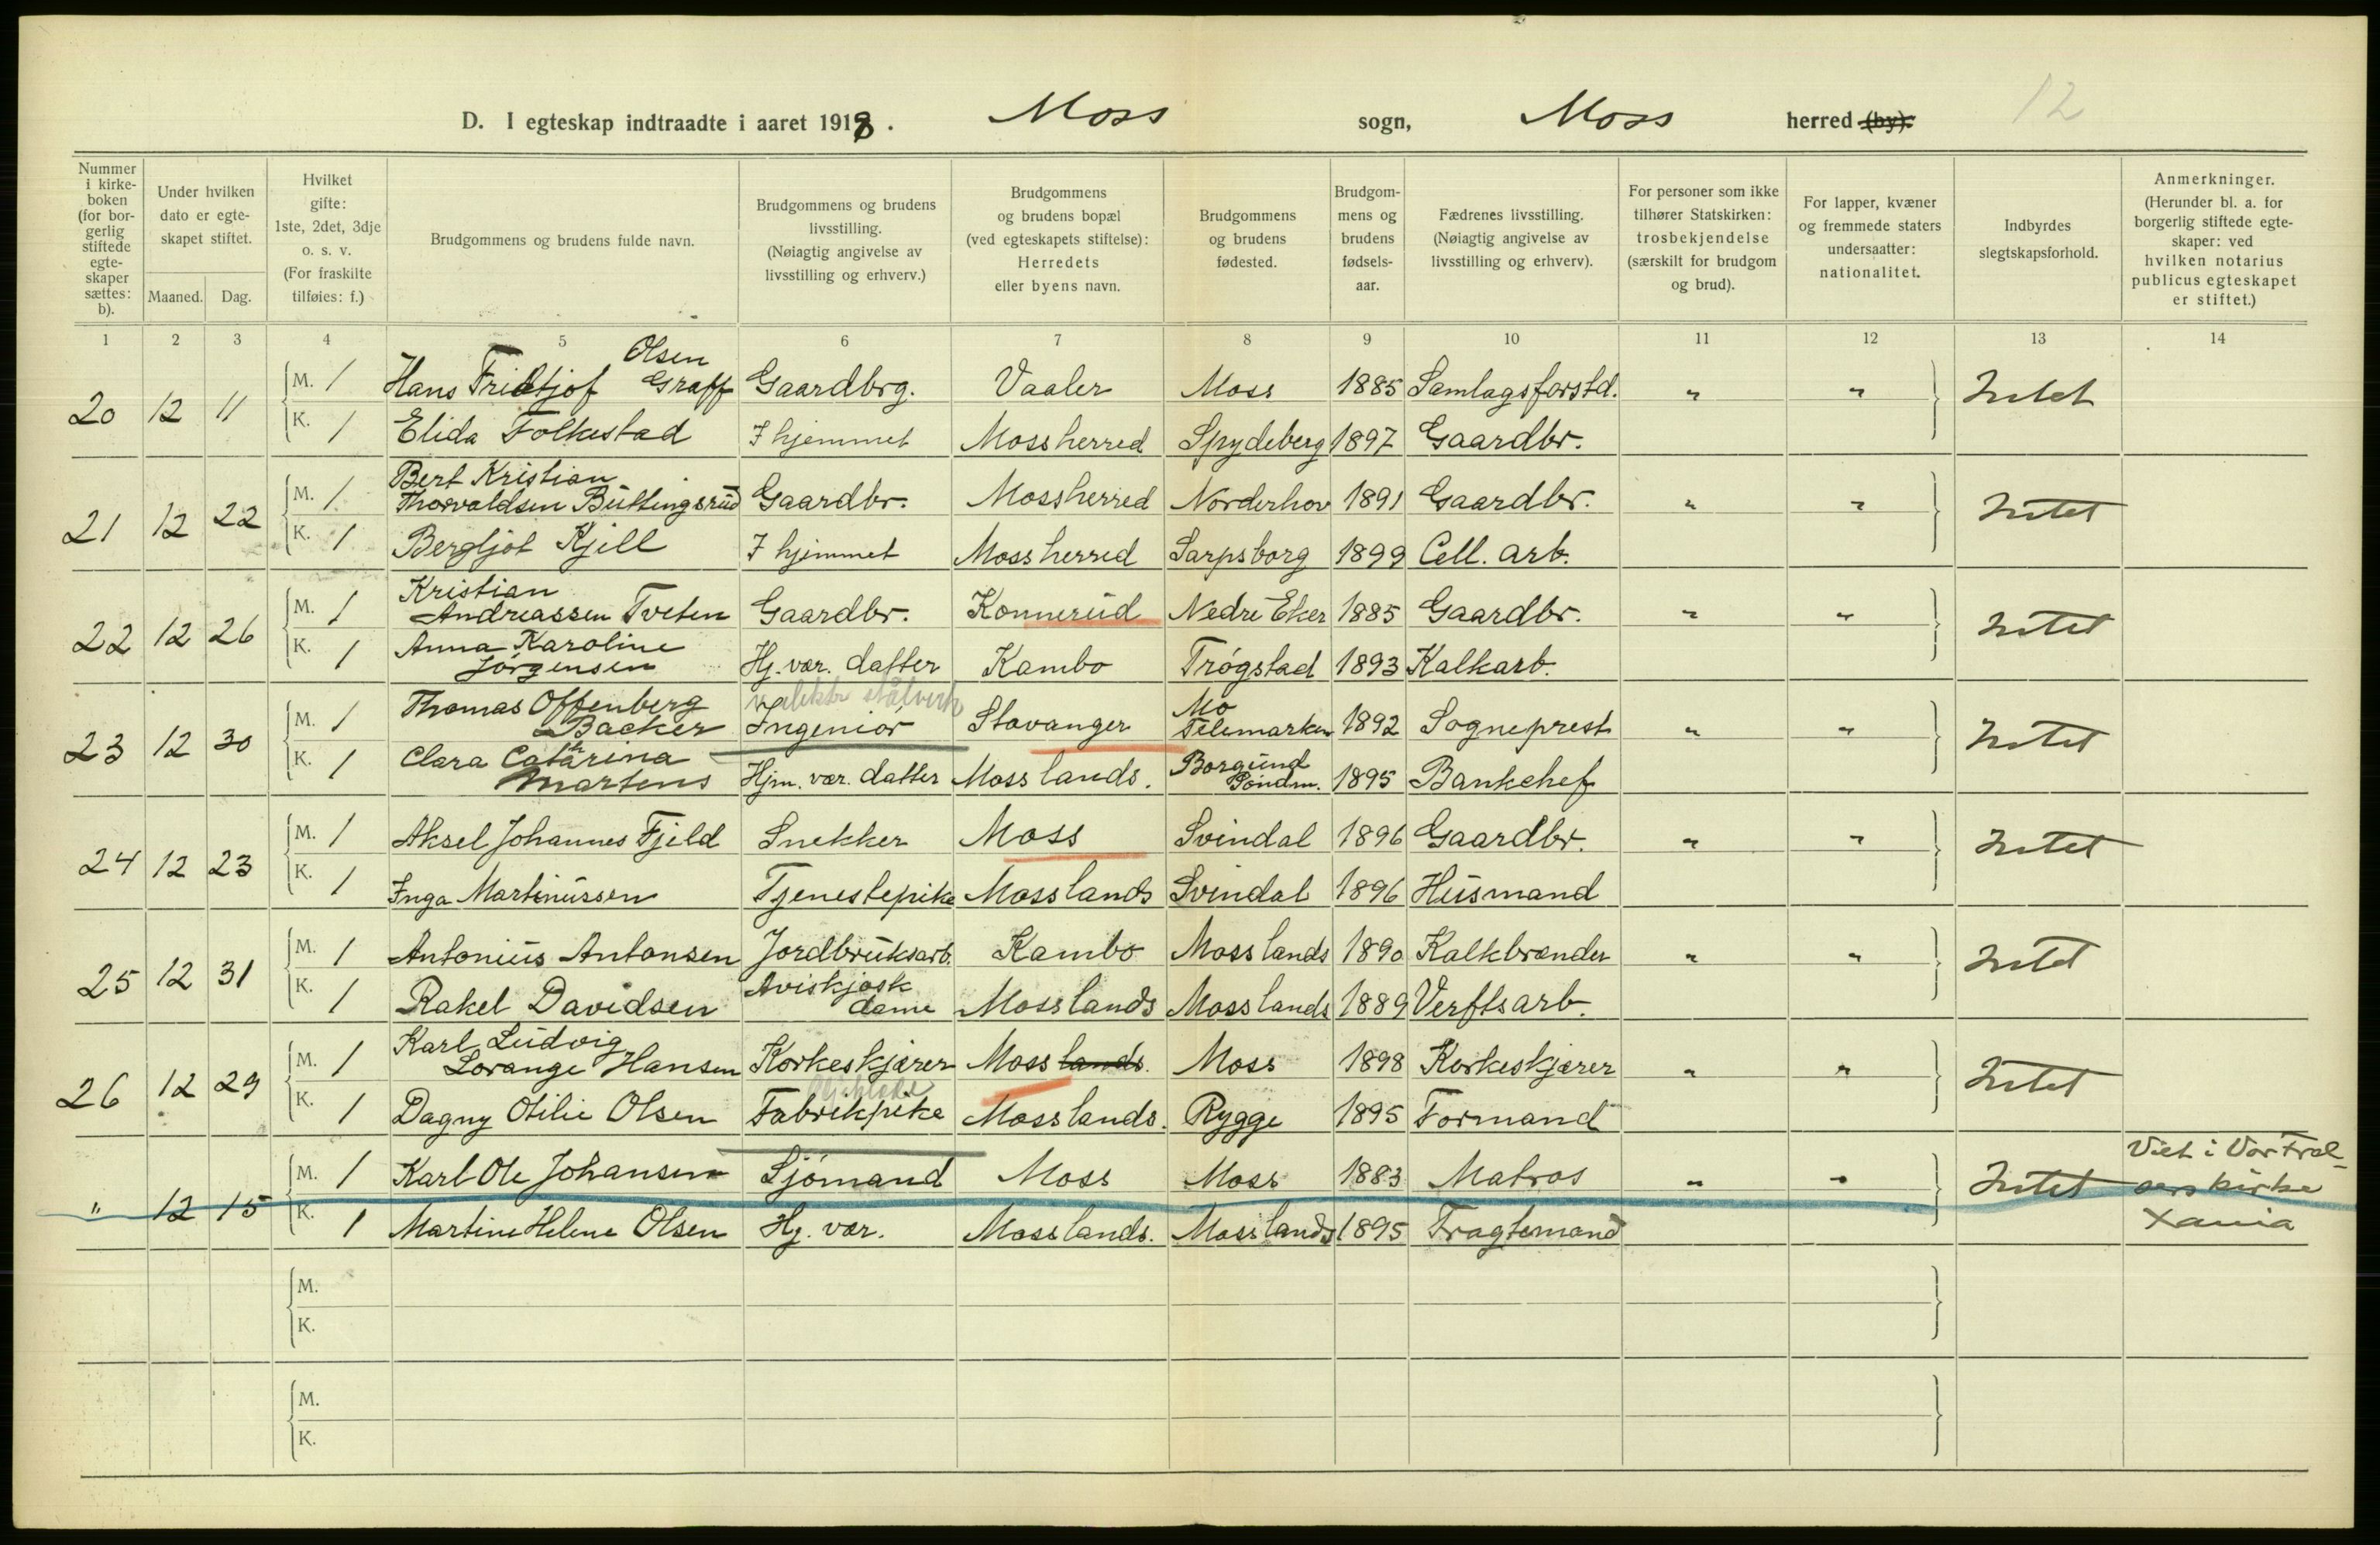 12
D. I egteskap indtraadte i aaret 1918. Moss sogn, Moss herred (by).
Nummer i kirke-boken (for bor-gerlig stiftede egte-skaper sættes: b).
Under hvilken dato er egte-skapet stiftet.
Maaned. Dag.
Hvilket gifte: 1ste, 2det, 3dje o. s. v. (For fraskilte tilføies: f.)
Brudgommens og brudens fulde navn.
Brudgommens og brudens livsstilling. (Nøiagtig angivelse av livsstilling og erhverv.)
Brudgommens og brudens bopæl (ved egteskapets stiftelse): Herredets eller byens navn.
Brudgommens og brudens fødested.
Brudgom-mens og brudens fødsels-aar.
Fædrenes livsstilling. (Nøiagtig angivelse av livsstilling og erhverv).
For personer som ikke tilhører Statskirken: trosbekjendelse (særskilt for brudgom og brud).
For lapper, kvæner og fremmede staters undersaatter: nationalitet.
Indbyrdes slegtskapsforhold.
Anmerkninger. (Herunder bl. a. for borgerlig stiftede egte-skaper: ved hvilken notarius publicus egteskapet er stiftet.)
1 2 3 4 5 6 7 8 9 10 11 12 13 14
20 12 11 M. 1 Hans Fridtjof Olsen Graff Gaardbrg. Vaaler Moss 1885 Samlagsforstd. " " Intet
K. 1 Elida Folkestad I hjemmet Mossherred Spydeberg 1897 Gaardbr.
21 12 22 M. 1 Bert Kristian
Thorvaldsen Büttingsrud Gaardbr. Mossherred Norderhov 1891 Gaardbr. " " Intet
K. 1 Bergljot Kjell I hjemmet Moss herred Sarpsborg 1899 Cell. arb.
22 12 26 M. 1 Kristian
Andreassen Tveten Gaardbr. Konnerud Nedre Eker 1885 Gaardbr. " " Intet
K. 1 Anna Karoline
Jörgensen Hj. vær. datter Kambo Trögstad 1893 Kalkarb.
23 12 30 M. 1 Thomas Offenberg
Backer Ingeniör Stavanger Mo Telemarken 1892 Sogneprest " " Intet
K. 1 Clara Catharina
Martens Hjm. vær. datter Moss lands. Borgund Söndm. 1895 Bankchef
24 12 23 M. 1 Aksel Johannes Fjeld Snekker Moss Svindal 1896 Gaardbr. " " Intet
K. 1 Inga Martinussen Tjenestepike Mosslands Svindal 1896 Husmand
25 12 31 M. 1 Antonius Antonsen Jordbruksarb. Kambo Moss lands 1890 Kalkbrænder " " Intet
K. 1 Rakel Davidsen Aviskjosk dame Mosslands Moss lands 1889 Verftsarb.
26 12 29 M. 1 Karl Ludvig
Lorange Hansen Korkeskjærer Moss lands. Moss 1898 Korkeskjærer " " Intet
K. 1 Dagny Otilie Olsen Fabrikpike Mosslands. Rygge 1895 Formand
" 12 15 M. 1 Karl Ole Johansen Sjömand Moss Moss 1883 Matros " " Intet Viet i Vor Frel-
sers kirke
K. 1 Martine Helene Olsen Hj. vær. Mosslands. Mosslands 1895 Fragtemand Xania
M.
K.
M.
K.